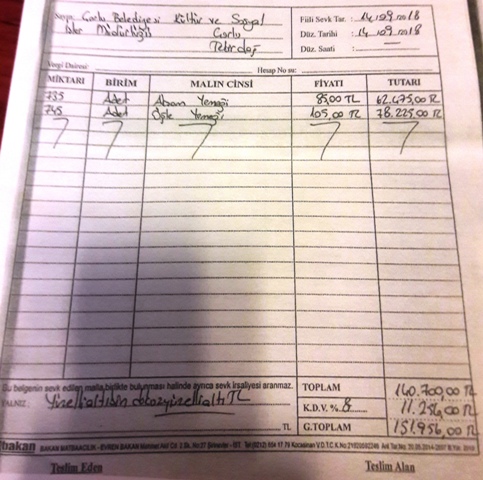 Sayın Çorlu Belediyesi Kültür ve Sosyal Fiili Sevk Tar. : 14/09/2018
İşler Müdürlüğü Çorlu Düz. Tarihi : 14/09/2018
Tekirdağ Düz. Saati :
Vergi Dairesi: Hesap No su:
MİKTARI BİRİM MALIN CİNSİ FİYATI TUTARI
735 Adet Akşam Yemeği 85,00 TL 62.475,00 TL
745 Adet Öğle Yemeği 105,00 TL 78.225,00 TL
Bu belgenin sevk edilen malla birlikte bulunması halinde ayrıca sevk irsaliyesi aranmaz. TOPLAM 140.700,00 TL
YALNIZ: K.D.V. % 8 11.256,00 TL
TL G.TOPLAM 151.956,00 TL
bakan BAKAN MATBAACILIK - EVREN BAKAN
Teslim Eden Teslim Alan